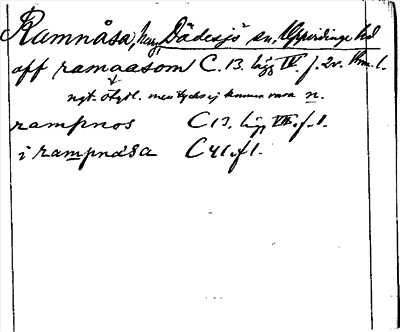 Ramnåsa, hmn, Dädesjö sn, Uppvidinge hd
off ramaasom C. 13. lägg IV f. 2v. 
ngt. otydl. men tycks ej kunna vara n.
rampnos C 13. lägg VII. f. 1.
i rampnåsa C 41. f 1.